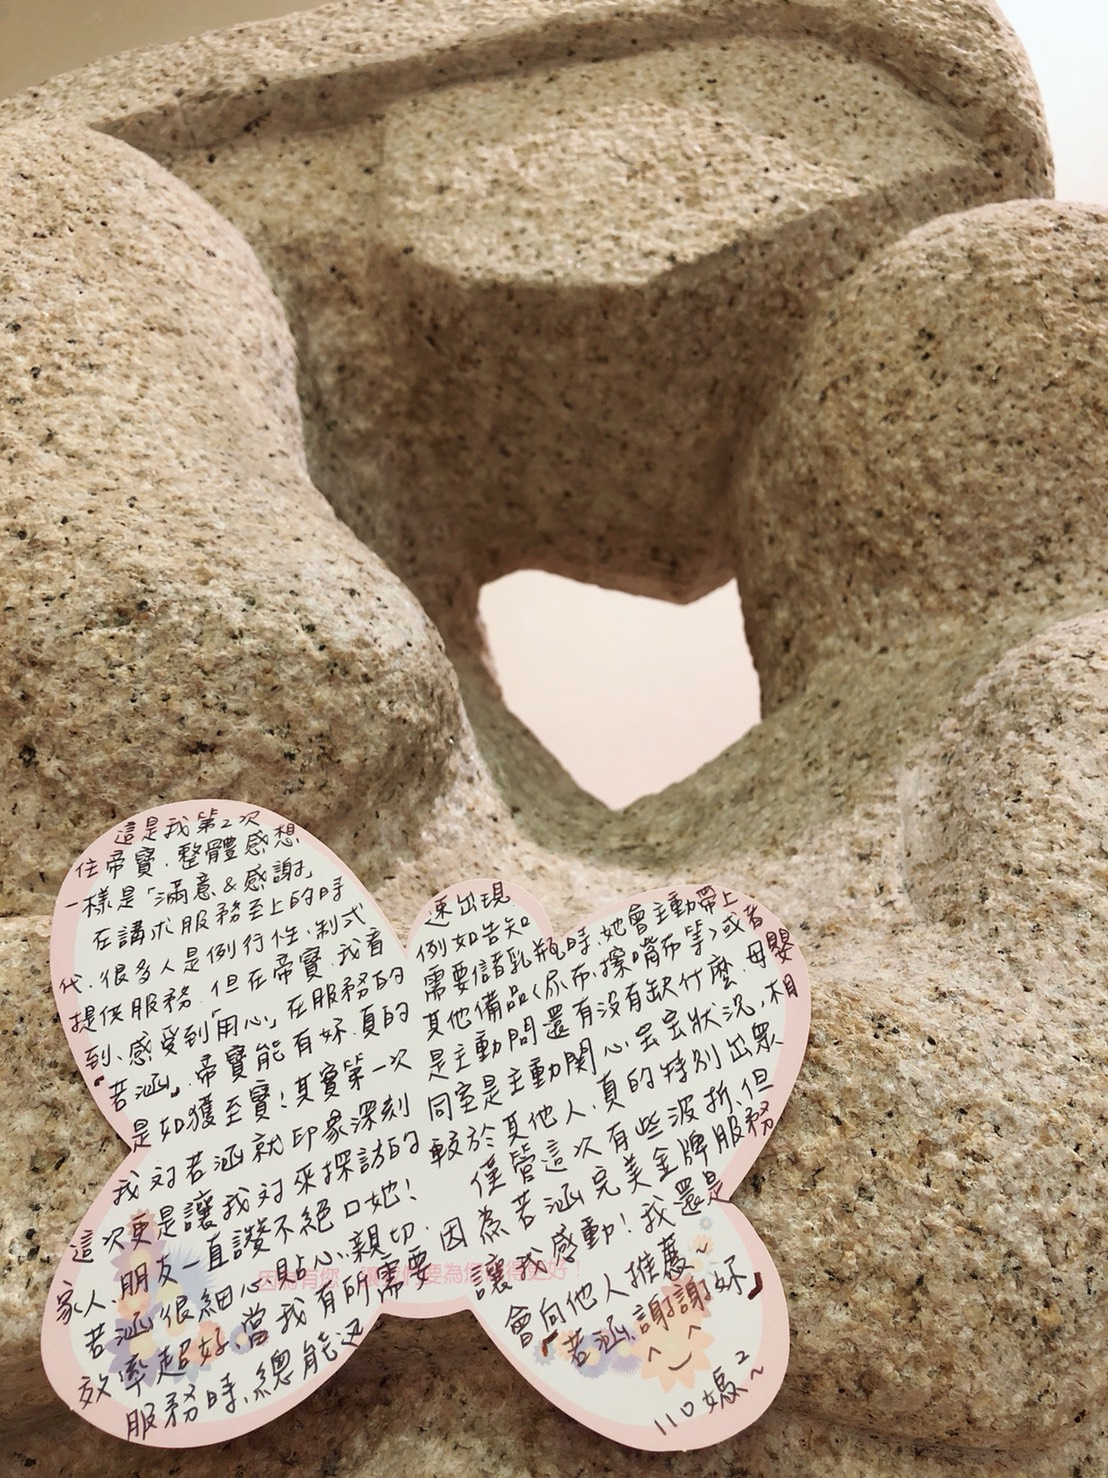 這是我第2次
住帝寶.整體感想
一樣是「滿意&感謝」
在講求服務至上的時
代.很多人是例行性、制式
提供服務.但在帝寶.我看
到、感受到「用心」在服務的
"若涵".帝寶能有妳.真的
是如獲至寶!其實第一次
我對若涵就印象深刻
這次更是讓我對來探訪的
家人、朋友一直讚不絕口她!
若涵很細心、貼心、親切.
效率超好.當我有所需要
服務時.總能迅
速出現
例如告知
需要借乳瓶時.她會主動帶上
其他備品(尿布、擦嘴布等)或者
是主動問還有沒有缺什麼.母嬰
同室是主動關心寶寶狀況.相
較於其他人.真的特別出眾
僅管這次有些波折.但
因為若涵完美金牌服務
讓我感動!我還是
會向他人推薦~
「若涵.謝謝妳」
^‿^
110媽²~